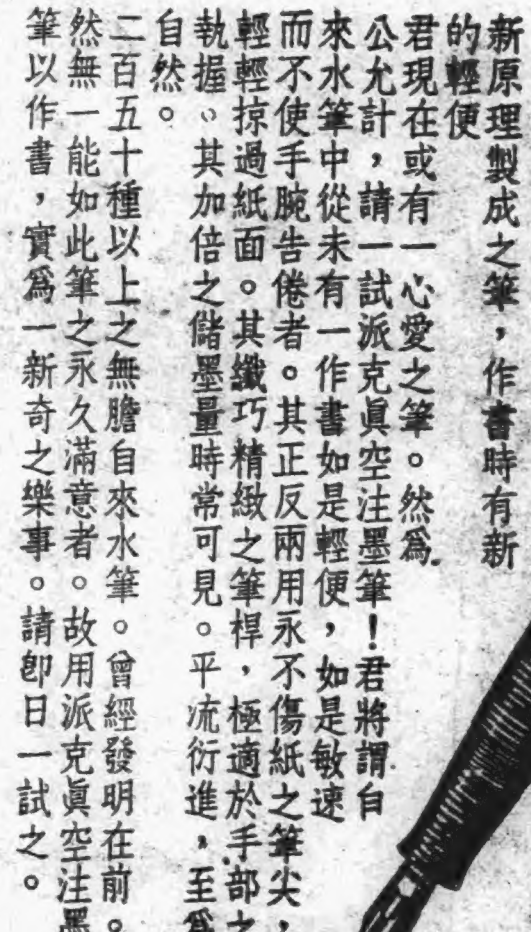 新原理製成之筆，作書時有新
的輕便
君現在或有一心愛之筆。然爲
公允計，請一試派克眞空注墨筆！君將謂自
來水筆中從未有一作書如是輕便，如是敏速
而不使手腕告倦者。其正反兩用永不傷紙之筆尖，
輕輕掠過紙面。其纖巧精緻之筆桿，極適於手部之
執握。其加倍之儲墨量時常可見。平流衍進，至爲
自然。
二百五十種以上之無膽自來水筆。曾經發明在前。
然無一能如此筆之永久滿意者。故用派克眞空注墨
筆以作書，實爲一新奇之樂事。請卽日一試之。